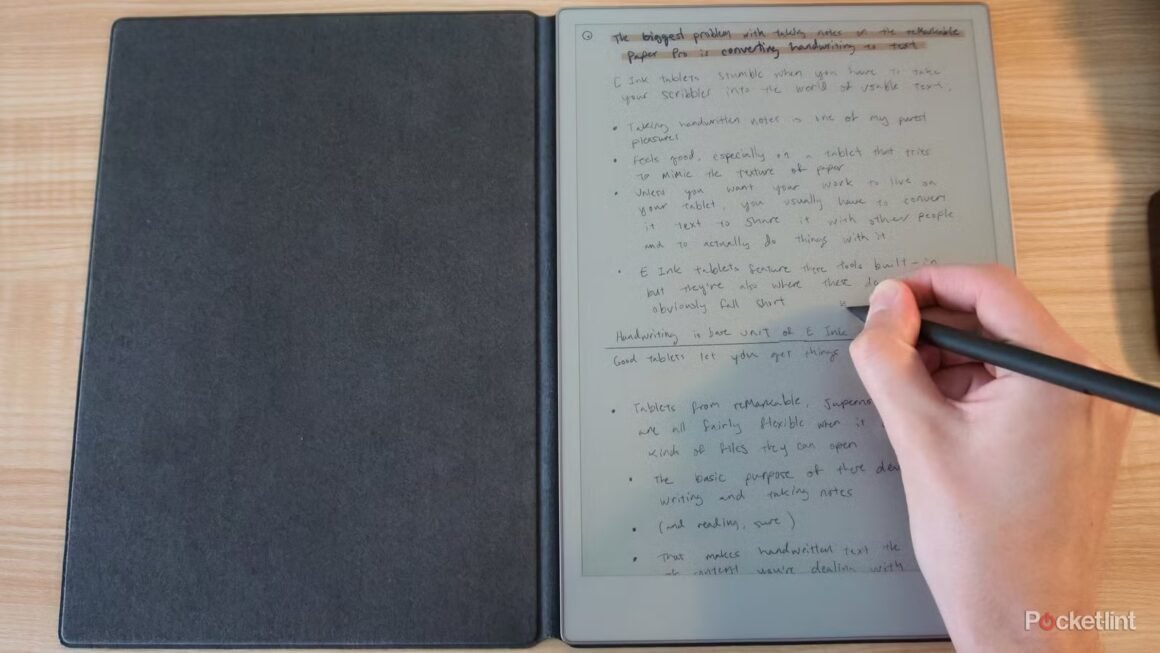 The biggest problem with taking notes on the reMarkable
Paper Pro is converting handwriting to text
E Ink tablets stumble when you have to take
your scribbles into the world of usable text.
• Taking handwritten notes is one of my purest
pleasures
• Feels good, especially on a tablet that tries
to mimic the texture of paper
• Unless you want your work to live on
your tablet, you usually have to convert
it text to share it with other people
and to actually do things with it.
• E Ink tablets feature these tools built-in
but they're also where these
obviously fall short
Handwriting is base unit of E Ink
Good tablets let you get things
• Tablets from reMarkable,
are all fairly flexible when it
kinds of files they can open
• The basic purpose of these
writing and taking notes
• (and reading, sure)
• That makes handwritten text the
content you're dealing with
Pocketlint